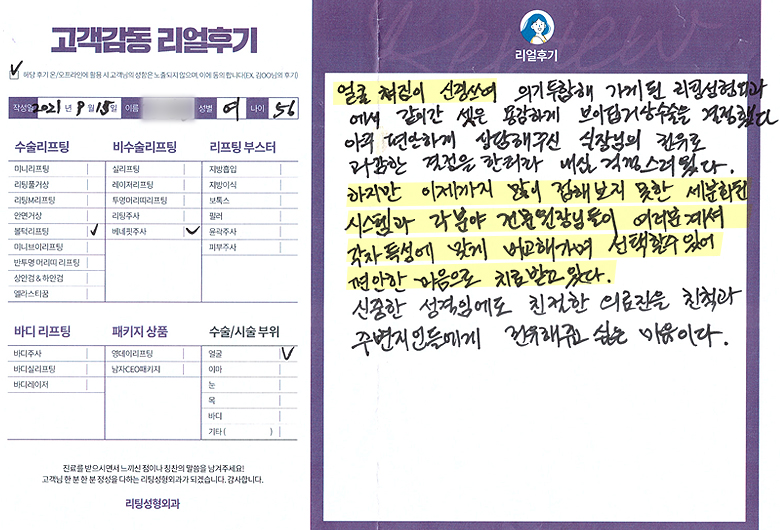 고객감동 리얼후기
✓ 해당 후기 온/오프라인에 활용 시 고객님의 성함은 노출되지 않으며, 이에 동의합니다(EX. 김OO님의 후기)
작성일 2021년 9월 15일 이름 성별 여 나이 56
수술리프팅
미니리프팅
리팅풀거상
리팅M리프팅
안면거상
볼턱리프팅 ✓
미니브이리프팅
반투명 머리띠 리프팅
상안검 & 하안검
엘라스티꿈
비수술리프팅
실리프팅
레이저리프팅
투명머리띠리프팅
리팅주사
베네핏주사 ✓
리프팅 부스터
지방흡입
지방이식
보톡스
필러
윤곽주사
피부주사
바디 리프팅
바디주사
바디실리프팅
바디레이저
패키지 상품
영데이리프팅
남자CEO패키지
수술/시술 부위
얼굴 ✓
이마
눈
목
바디
기타 ( )
진료를 받으시면서 느끼신 점이나 칭찬의 말씀을 남겨주세요!
고객님 한 분 한 분 정성을 다하는 리팅성형외과가 되겠습니다. 감사합니다.
리팅성형외과
Review
리얼후기
얼굴 처짐이 신경쓰여 의기투합해 가게된 리팅성형외과
에서 같이간 셋은 용감하게 브이집거상수술을 결정했다
아주 편안하게 상담해주신 실장님의 권유로
과감한 결정을 한터라 내심 걱정스러웠다.
하지만 이제까지 많이 접해보지 못한 세분화된
시스템과 각분야 전문원장님들이 여러분계셔
각자특성에 맞게 비교해가며 선택할수 있어
편안한 마음으로 치료받고있다.
신중한 성격임에도 친절한 의료진을 친척과
주변지인들에게 권유해주고 싶은 마음이다.